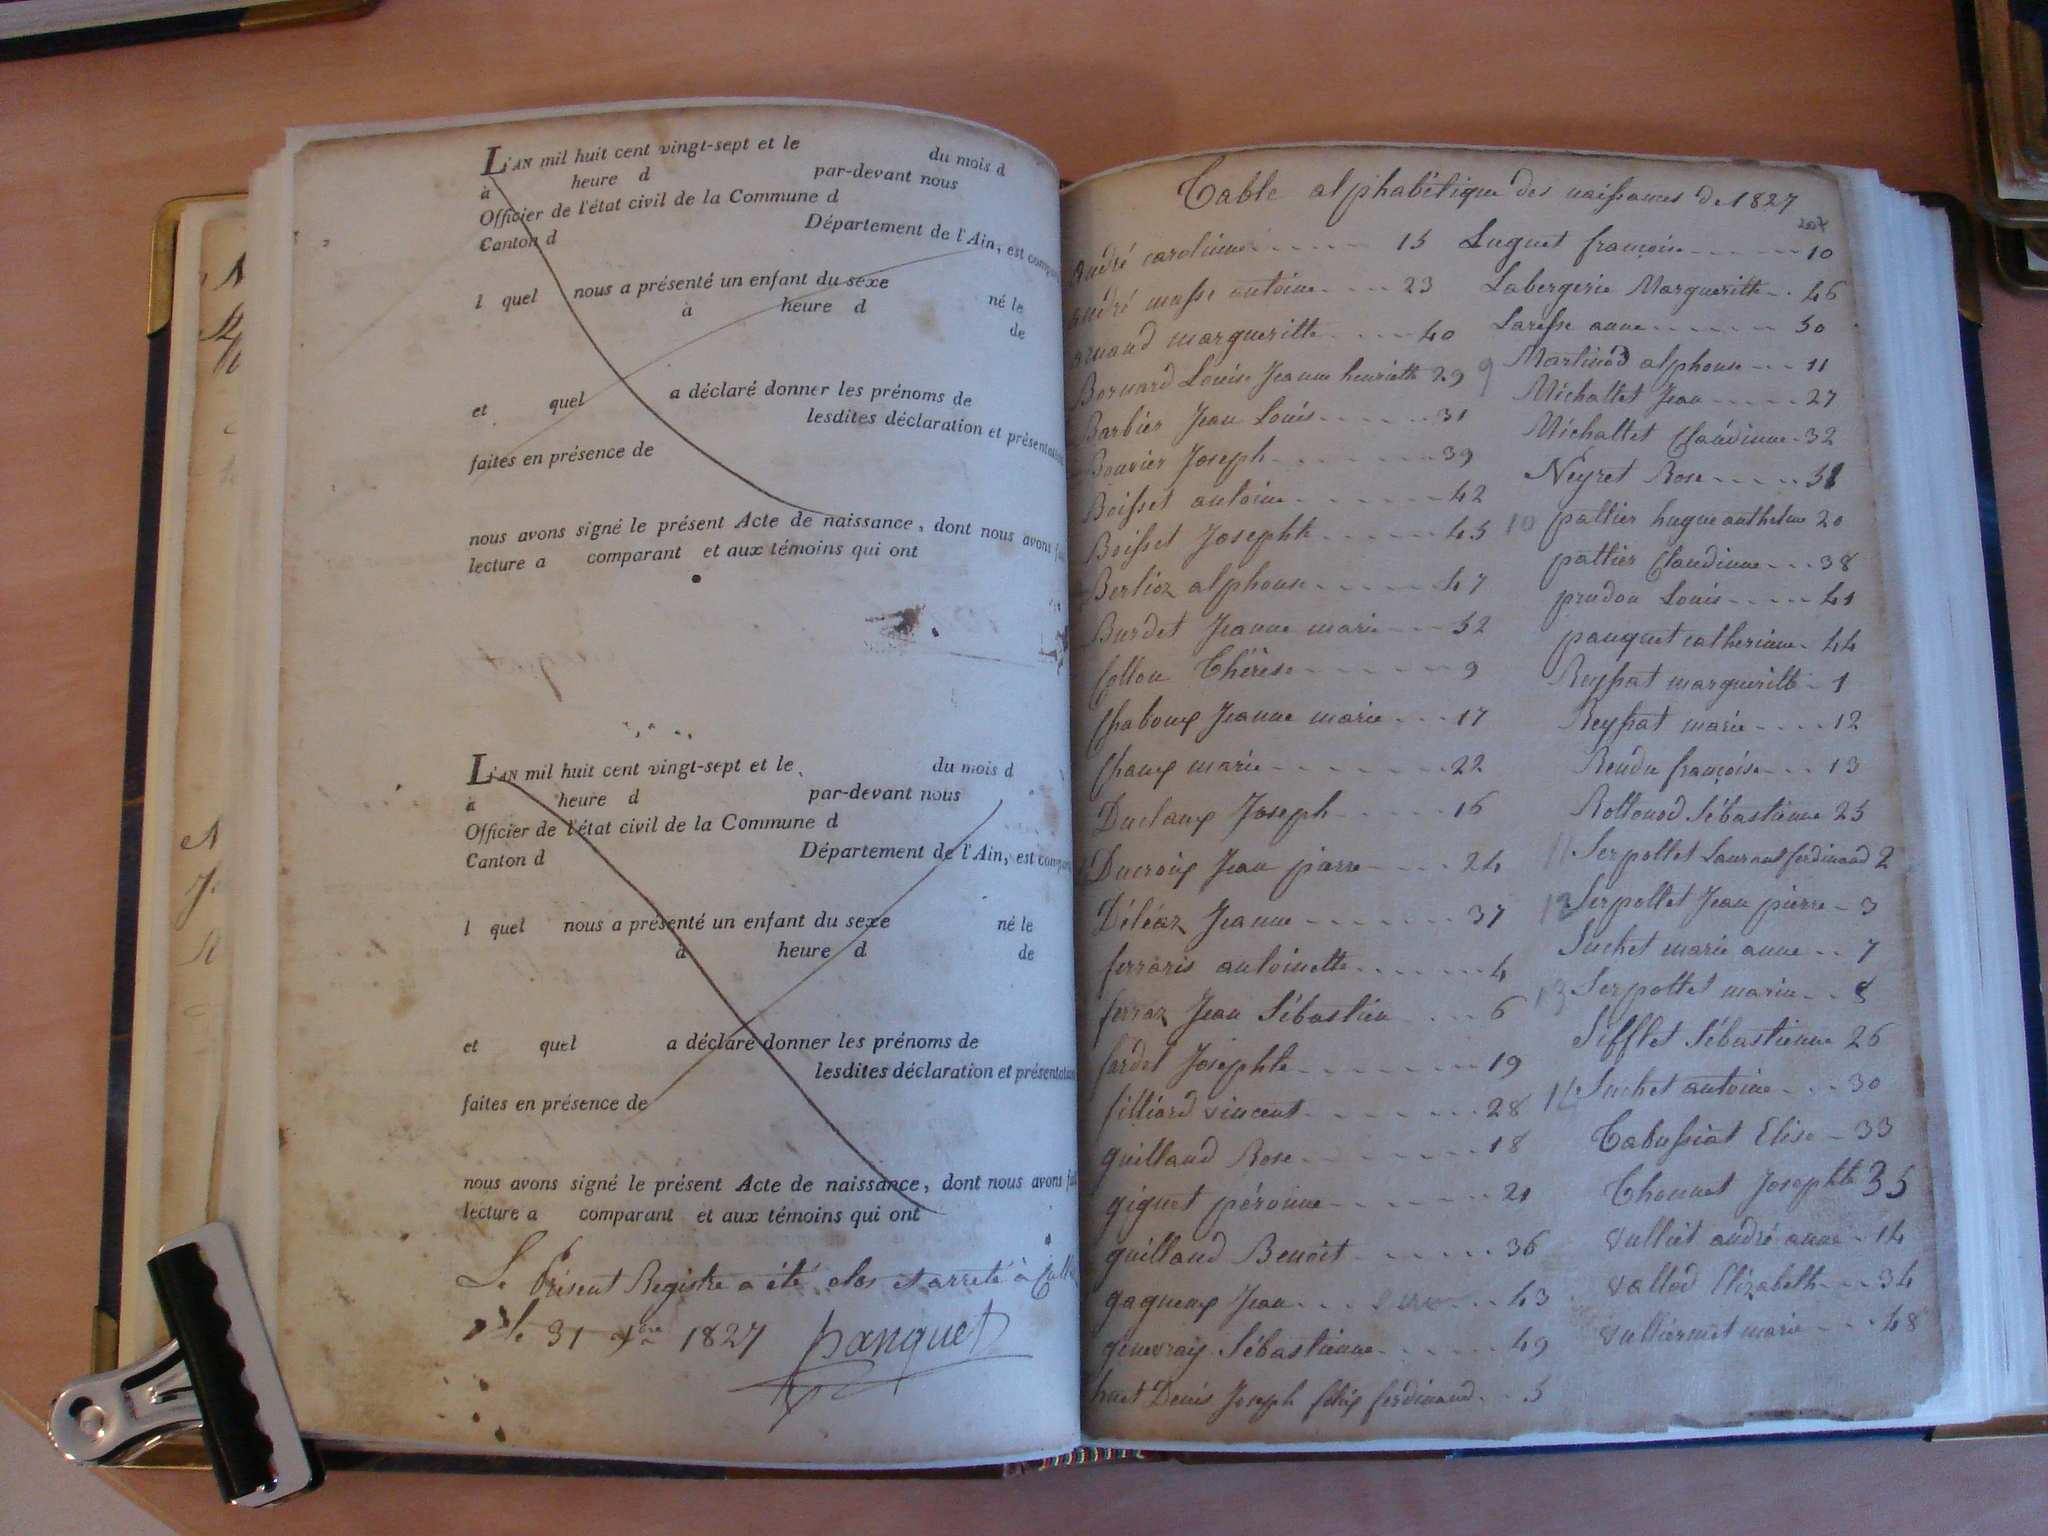 L'AN mil huit cent vingt-sept et le du mois d
à heure d par-devant nous
Officier de l'état civil de la Commune d
Canton d Département de l'Ain, est
l quel nous a présenté un enfant du sexe né le
à heure d de
et quel a déclaré donner les prénoms de
lesdites déclaration et
faites en présence de
nous avons signé le présent Acte de naissance, dont nous avons
lecture a comparant et aux témoins qui ont
L'AN mil huit cent vingt-sept et le du mois d
à heure d par-devant nous
Officier de l'état civil de la Commune d
Canton d Département de l'Ain, est
l quel nous a présenté un enfant du sexe né le
à heure d de
et quel a déclaré donner les prénoms de
lesdites déclaration et
faites en présence de
nous avons signé le présent Acte de naissance, dont nous avons
lecture a comparant et aux témoins qui ont
Le Présent Registre a été clos et arreté à
le 31 1827 panquet
Table alphabétique des naissances de 1827
207
andré caroline 15
andré masse antoine 23
margueritte 40
Bornard Louise Jeanne henriette 29
Barbier Jean Louis 31
Bouvier Joseph 39
Boisset antoine 42
Boisset Josephte 45
Berlioz alphonse 47
Burdet Jeanne marie 52
Collon Thérèse 9
Chaboux Jeanne marie 17
Chanex marie 22
Duclaux Joseph 16
Ducroix Jean pierre 24
Déléaz Jeanne 37
ferraris antoinette 4
ferraz Jean Sébastien 6
fardel Josephte 19
filliard vincent 28
guilland Rose 18
giguet péronne 21
guilland Benoit 36
gagneux Jean 43
genevraix Sébastienne 49
huet Denis Joseph félix ferdinand 5
Luguet françois 10
Labergerie Margueritte 46
Laresse anne 50
9 Martinod alphonse 11
Michallet Jean 27
Michallet Claudinne 32
Neyret Rose 51
10 pallier hugue anthelme 20
pallier Claudinne 38
prudon Louis 41
panquet catherinne 44
Reyssat margueritte 1
Reyssat marie 12
Rendu françoise 13
Rollonod Sébastienne 25
11 Serpollet Laurent ferdinand 2
12 Serpollet Jean pierre 3
Suchet marie anne 7
13 Serpollet marie 8
Sifflet Sébastienne 26
14 Suchet antoine 30
Tabussiat Elise 33
Thonnet Josephte 35
Vulliet andré anne 14
Vallod Elizabeth 34
Vulliermet marie 48